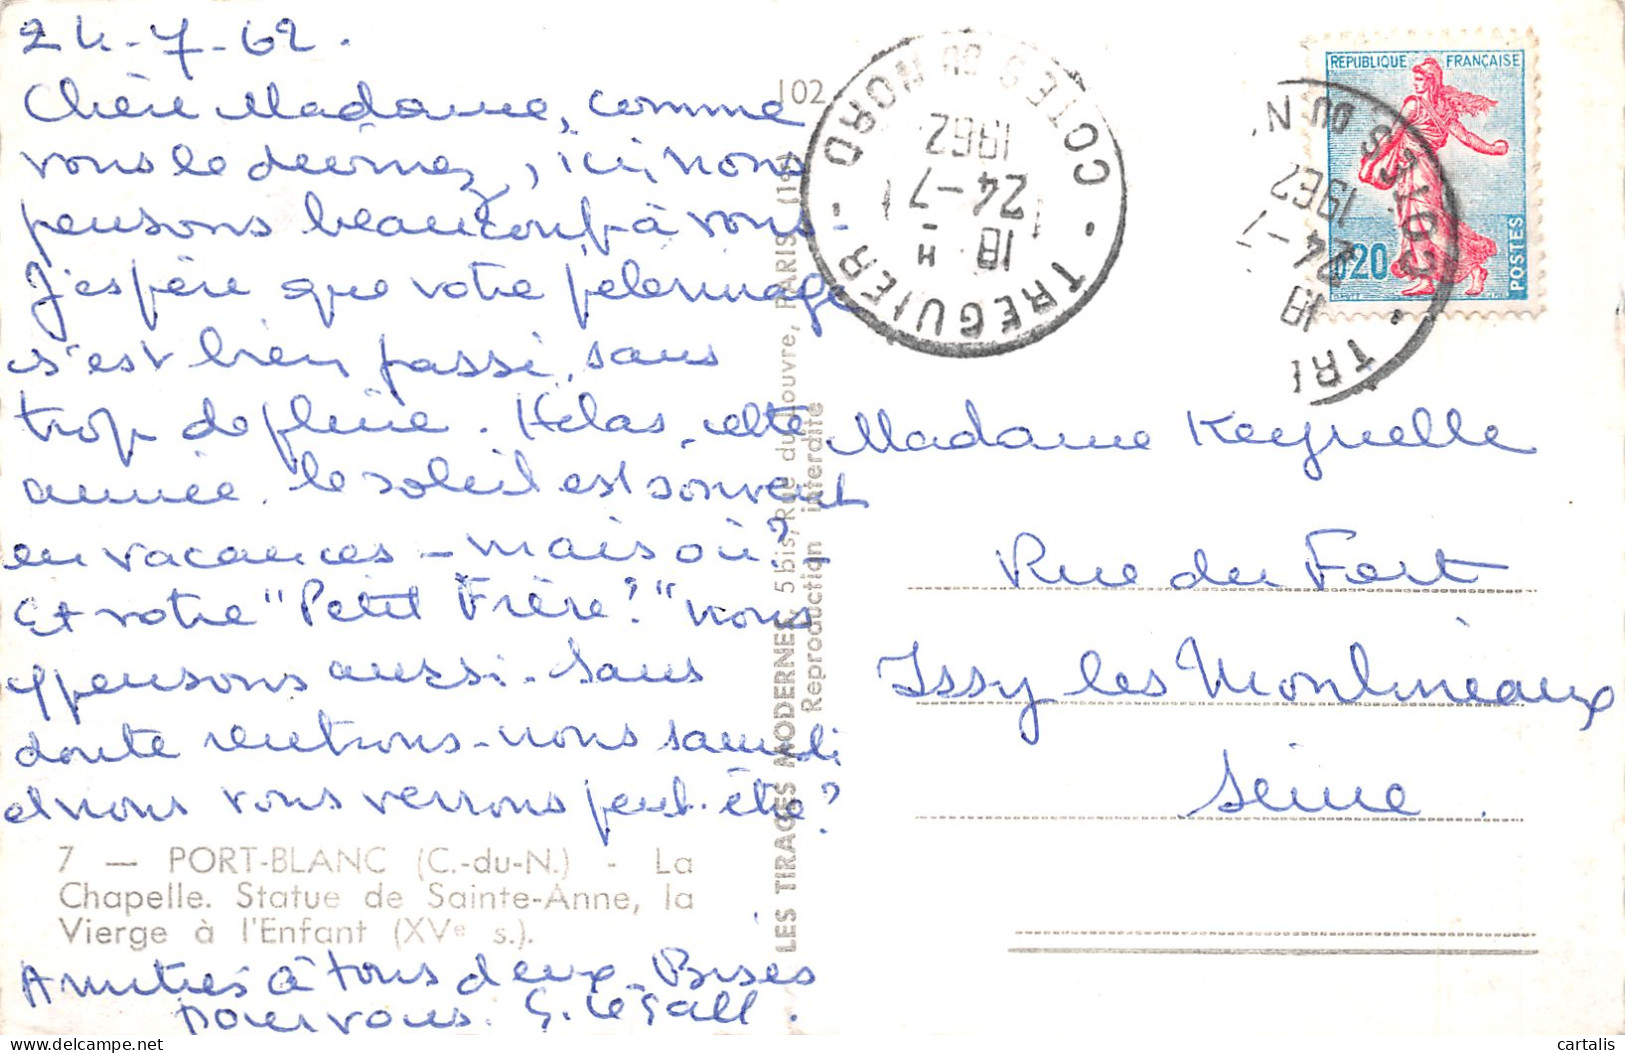 24-7-62.
Chère Madame, comme
vous le devinez, ici, nous
pensons beaucoup à vous -
J'espère que votre pélerinage
s'est bien passé, sans
trop de pluie. Hélas, cette
année, le soleil est souvent
en vacances - mais où?
Et votre "Petit Frère?" nous
y pensons aussi - Sans
doute rentrons-nous samedi
et nous vous verrons peut-être?
7 — PORT-BLANC (C.-du-N.) - La
Chapelle. Statue de Sainte-Anne, la
Vierge à l'Enfant (XVe s.).
Amitiés à tous deux - Bises
pour vous. G. Le Gall.
102
LES TIRAGES MODERNES, 5 bis, Rue du Louvre, PARIS (1er)
Reproduction interdite
TREGUIER - COTES DU NORD
18 H
24-7
1962
TRE COTES DU N
18
24-7-
1962
REPUBLIQUE FRANÇAISE
0,20
POSTES
Madame
Rue du Fort
Issy les Moulineaux
Seine.
cartalis